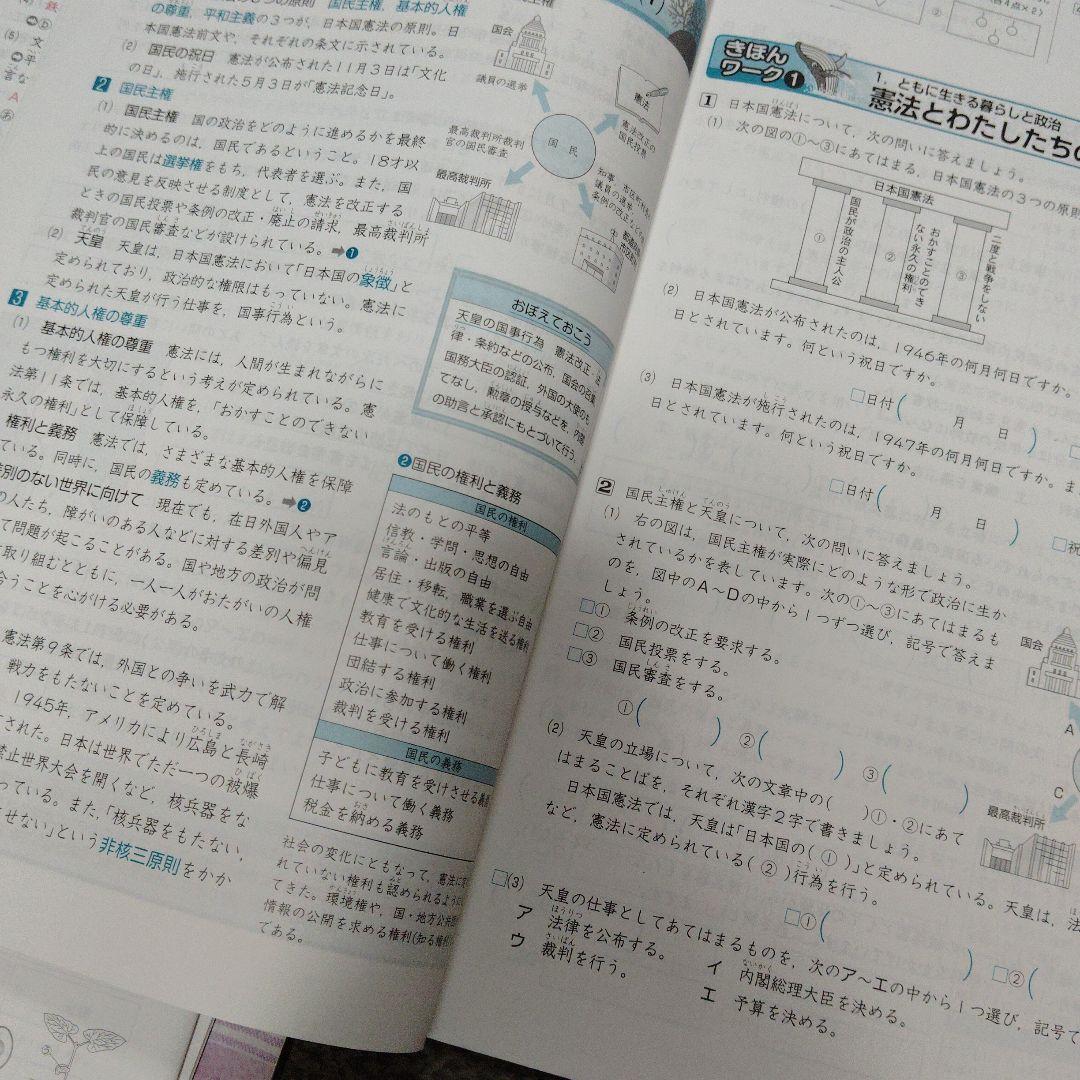 の尊重，平和主義の３つが，日本国憲法の原則。日
本国憲法前文や，それぞれの条文に示されている。
(2) 国民の祝日 憲法が公布された11月３日は「文化
の日」，施行された５月３日が「憲法記念日」。
2 国民主権
(1) 国民主権 国の政治をどのように進めるかを最終
的に決めるのは，国民であるということ。18才以
上の国民は選挙権をもち，代表者を選ぶ。また，国
民の意見を反映させる制度として，憲法を改正する
ときの国民投票や条例の改正・廃止の請求，最高裁判所
裁判官の国民審査などが設けられている。➡❶
(2) 天皇 天皇は，日本国憲法において「日本国の象徴」と
定められており，政治的な権限はもっていない。憲法に
定められた天皇が行う仕事を，国事行為という。
3 基本的人権の尊重
(1) 基本的人権の尊重 憲法には，人間が生まれながらに
もつ権利を大切にするという考えが定められている。憲
法第11条では，基本的人権を，「おかすことのできない
永久の権利」として保障している。
権利と義務 憲法では，さまざまな基本的人権を保障
ている。同時に，国民の義務も定めている。➡❷
別のない世界に向けて 現在でも，在日外国人やア
の人たち，障がいのある人などに対する差別や偏見
て問題が起こることがある。国や地方の政治が問
取り組むとともに，一人一人がおたがいの人権
合うことを心がける必要がある。
憲法第９条では，外国との争いを武力で解
戦力をもたないことを定めている。
1945年，アメリカにより広島と長崎
された。日本は世界でただ一つの被爆
禁止世界大会を開くなど，核兵器をな
っている。また，「核兵器をもたない，
せない」という非核三原則をかか
国会
議員の選挙
憲法
憲法改正の
国民投票
国民
最高裁判所裁判
官の国民審査
最高裁判所
おぼえておこう
天皇の国事行為 憲法改正，法
律・条約などの公布，国会の召集，
国務大臣の認証，外国の大使の
てなし，勲章の授与などを，内閣
の助言と承認にもとづいて行う。
❷国民の権利と義務
国民の権利
法のもとの平等
信教・学問・思想の自由
言論・出版の自由
居住・移転，職業を選ぶ自由
健康で文化的な生活を送る権利
教育を受ける権利
仕事について働く権利
団結する権利
政治に参加する権利
裁判を受ける権利
国民の義務
子どもに教育を受けさせる義務
仕事について働く義務
税金を納める義務
社会の変化にともなって，憲法に
れていない権利も認められるように
てきた。環境権や，国・地方公共団
情報の公開を求める権利(知る権利)
である。
きほん
ワーク1
1．ともに生きる暮らしと政治
憲法とわたしたちの
1 日本国憲法について，次の問いに答えましょう。
(1) 次の図の①～③にあてはまる，日本国憲法の３つの原則
日本国憲法
①
国民が政治の主人公
②
おかすことのでき
ない永久の権利
③
二度と戦争をしない
(2) 日本国憲法が公布されたのは，1946年の何月何日ですか。
日とされています。何という祝日ですか。
□日付( 月 日 )
(3) 日本国憲法が施行されたのは，1947年の何月何日ですか。ま
日とされています。何という祝日ですか。
□日付( 月 日 ) □祝
2 国民主権と天皇について，次の問いに答えましょう。
(1) 右の図は，国民主権が実際にどのような形で政治に生か
されているかを表しています。次の①～③にあてはまるも
のを，図中のＡ～Ｄの中から１つずつ選び，記号で答えま
しょう。
□① 条例の改正を要求する。
□② 国民投票をする。
□③ 国民審査をする。
①( ) ②( ) ③( )
国会
A
C
最高裁判所
(2) 天皇の立場について，次の文章中の( )①・②にあて
はまることばを，それぞれ漢字２字で書きましょう。
日本国憲法では，天皇は「日本国の( ① )」と定められている。天皇は，法
など，憲法に定められている( ② )行為を行う。
□①( ) □②(
□(3) 天皇の仕事としてあてはまるものを，次のア～エの中から１つ選び，記号で
ア 法律を公布する。
イ 内閣総理大臣を決める。
ウ 裁判を行う。
エ 予算を決める。